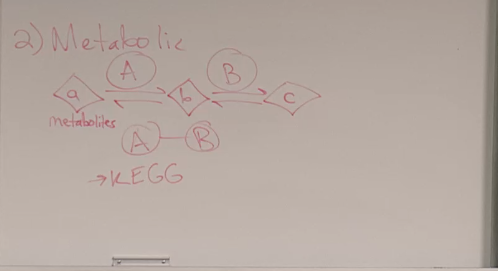 2) Metabolic
A B
a b c
metabolites
A B
→KEGG